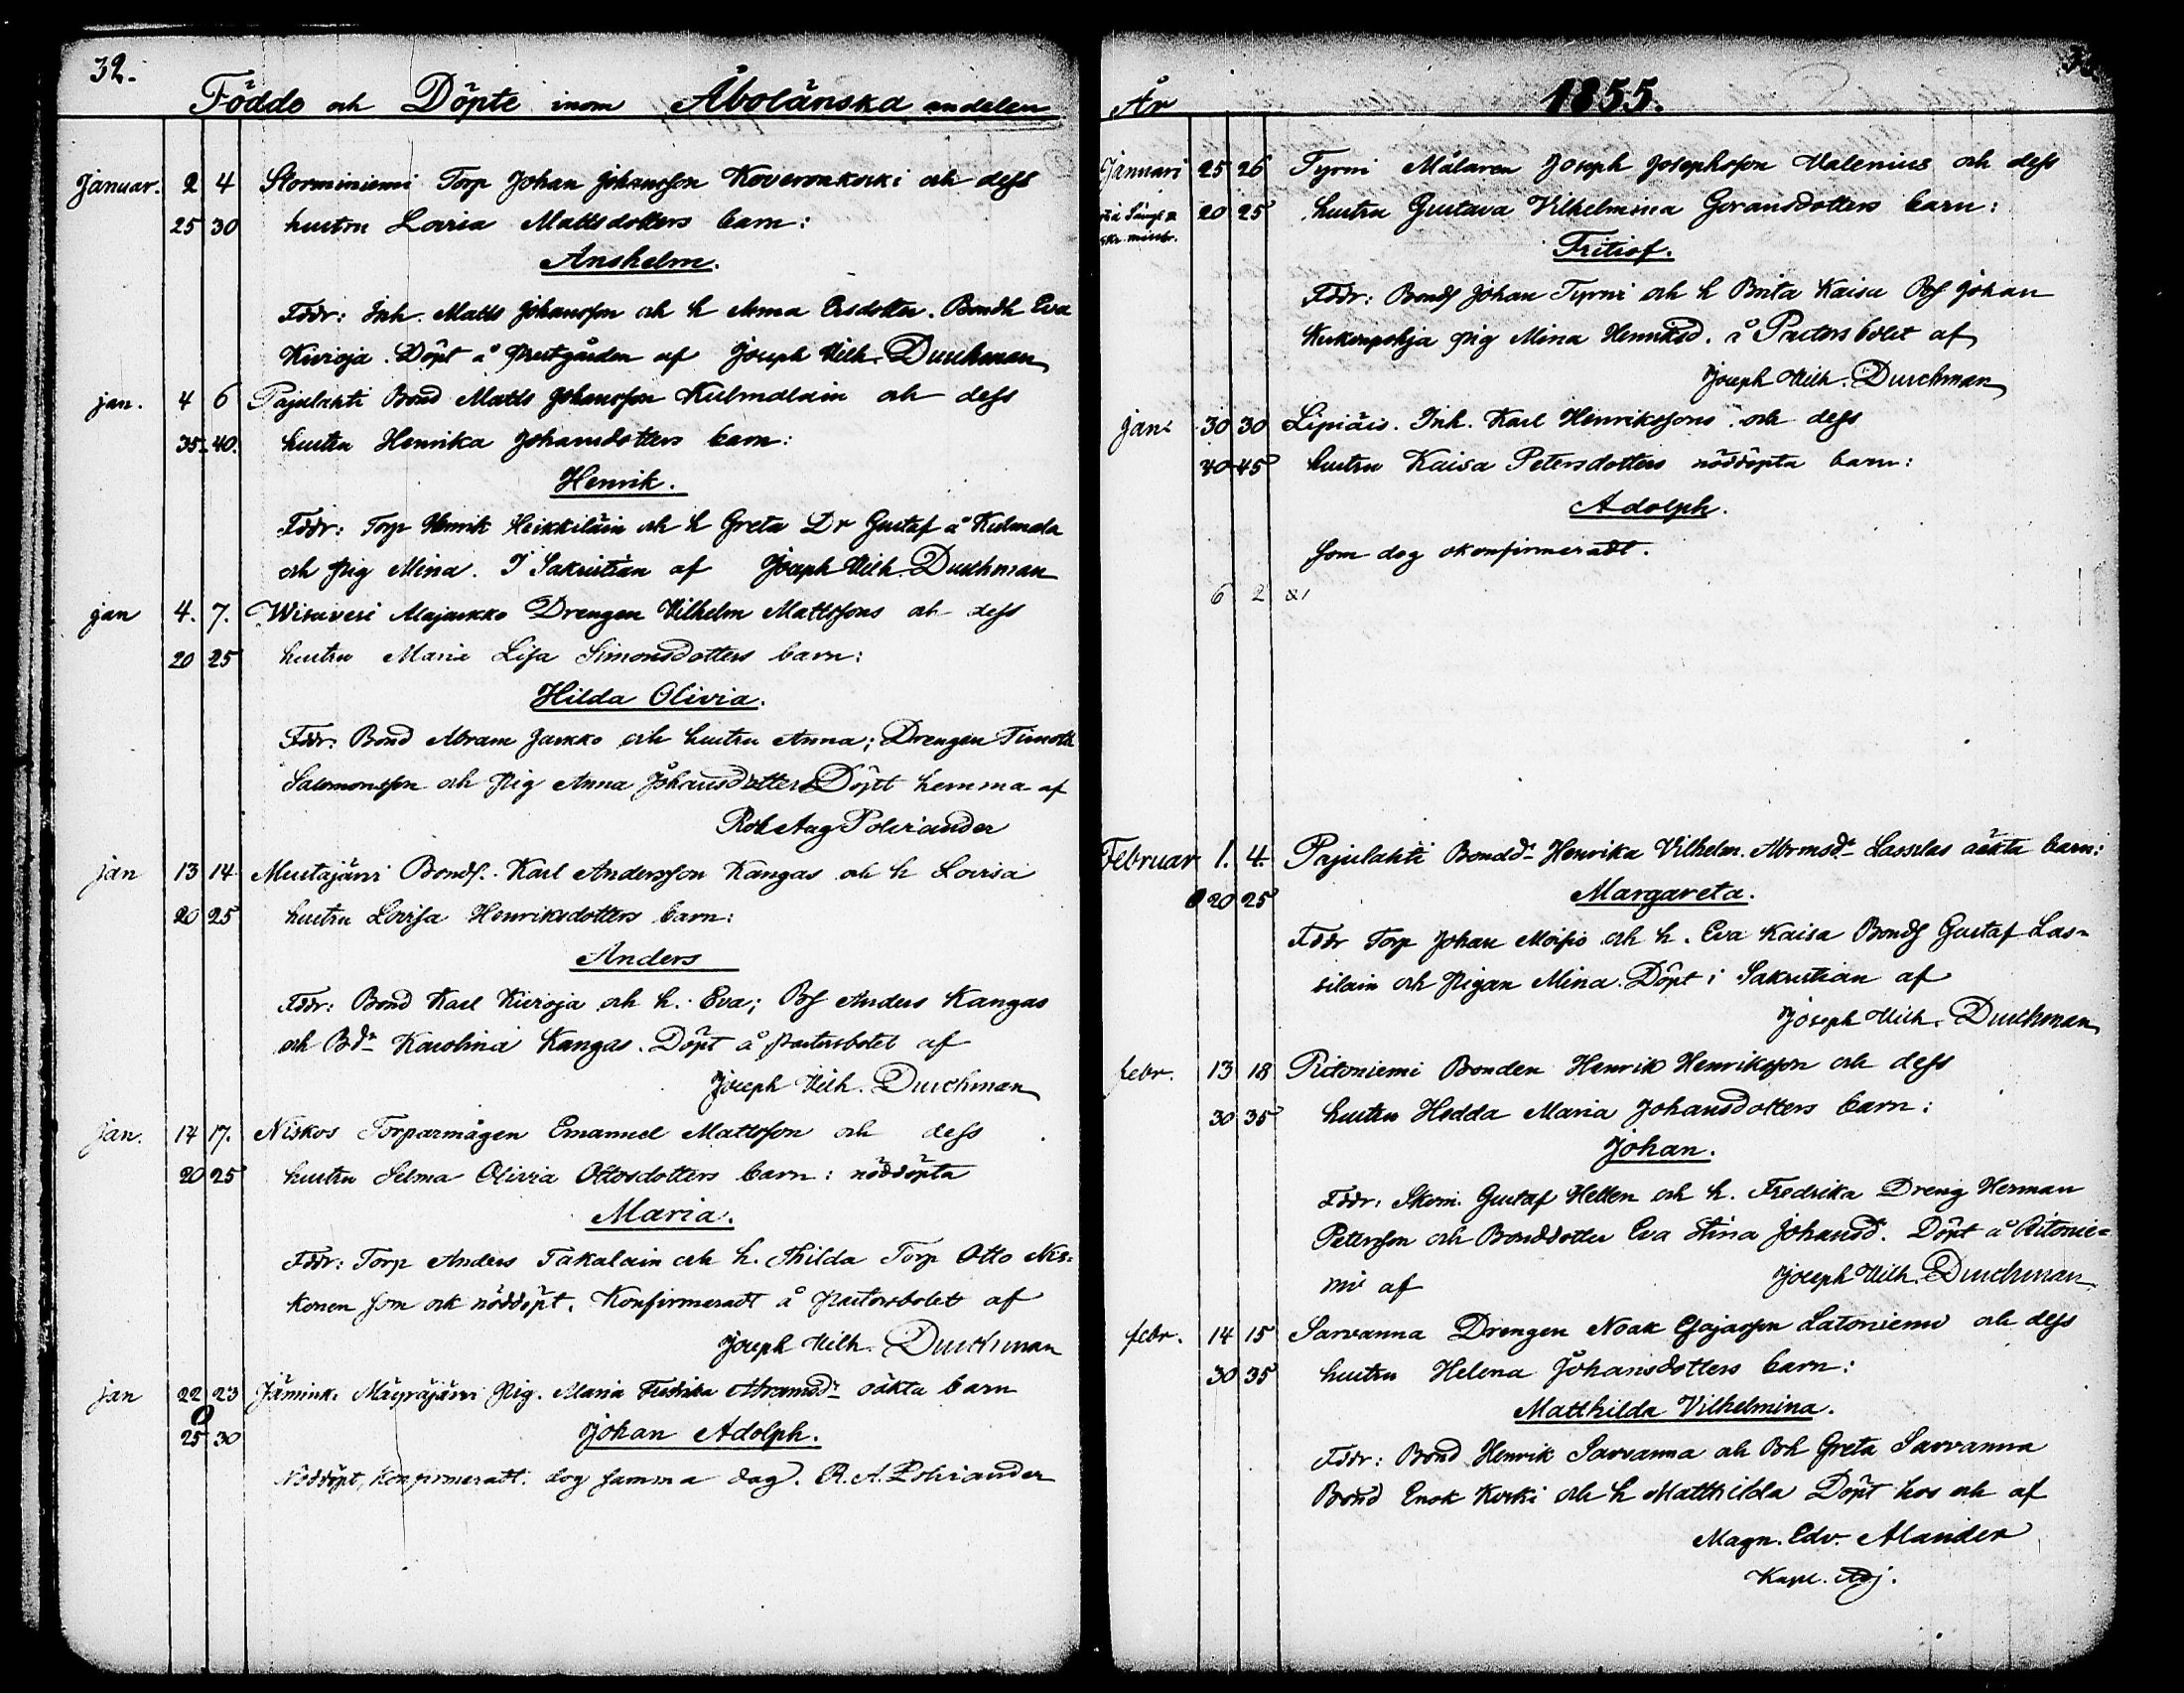 32.
Födde och Döpte inom Åbolänska andelen
Januar. 2 4 Storminiemi Torp Johan Johansson Koveronkoski och dess
25 30 hustru Lovisa Mattsdotters barn:
Anshelm.
Fddr: Inh. Matts Johansson och h Anna Ersdotter. Bondh Eva
Kivioja. Döpt å Prestgården af Joseph Vilh. Durchman
jan. 4 6 Pajulahti Bond Matts Johansson Kulmalain och dess
35-40. hustru Henrika Johansdotters barn:
Henrik.
Fddr: Torp Henrik Heikkiläin och h Greta Dr Gustaf å Kulmala
och pig Mina. I Sakristian af Joseph Vilh. Durchman
jan 4. 7. Wisuvesi Alajaskko Drengen Vilhelm Mattssons och dess
20 25 hustru Maria Lisa Simonsdotters barn:
Hilda Olivia.
Fddr: Bond Abram Jaskko och hustru Anna; Drengen Timoth
Salomonsson och Pig Anna Johansdotter Döpt hemma af
Rob Aug Polviander
jan 13 14 Mustajärvi Bonds. Karl Andersson Kangas och h Lovisa
20 25 hustru Lovisa Henriksdotters barn:
Anders
Fddr: Bond Karl Kivioja och h. Eva; Bs Anders Kangas
och Bdr Karolina Kangas. Döpt å pastorsbolet af
Joseph Vilh. Durchman
jan. 14 17. Niskos Torparmågen Emanuel Mattsson och dess
20 25 hustru Selma Olivia Ottosdotters barn: nöddöpta
Maria.
Fddr: Torp Anders Takalain och h. Thilda Torp Otto Nis-
konen som ock nöddöpt. Konfirmeradt å Pastorsbolet af
Joseph Vilh. Durchman
jan 22 23 Jämink. Mäyräjärvi Pig. Maria Fredrika Abramsdr oäkta barn
25 30 Johan Adolph.
Nöddöpt, Konfirmeradt. dog samma dag. R. A. Polviander
År 1855.
Januari 25 26 Tyrni Målaren Joseph Josephsson Valenius och dess
20 25 hustru Gustava Vilhelmina Goransdotters barn:
Fritiof.
Fddr: Bonds Johan Tyrni och h Brita Kaisa Bs Johan
Keskenpohja pig Mina Henriksd. å Pastorsbolet af
Joseph Vilh. Durchman
jan. 30 30 Lipiäis. Inh. Karl Henrikssons och dess
40-45 hustru Kaisa Petersdotters nöddöpta barn:
Adolph.
som dog okonfirmeradt.
6 2
Februar 1. 4. Pajulahti Bonddr Henrika Vilhelm. Abrmsdr Lassilas oäkta barn:
20 25 Margareta.
Fddr Torp Johan Moisio och h. Eva Kaisa Bonds Gustaf Las-
silain och Pigan Mina. Döpt i Sakristian af
Joseph Vilh. Durchman
febr. 13 18 Ritoniemi Bonden Henrik Henriksson och dess
30 35 hustru Hedda Maria Johansdotters barn:
Johan.
Fddr: Skom. Gustaf Hellen och h. Fredrika Dreng Herman
Petersson och Bonddotter Eva Stina Johansd. Döpt å Ritonie-
mi af Joseph Vilh. Durchman
febr. 14 15 Sarvanna Drengen Noak Esajasson Latoniemi och dess
30 35 hustru Helena Johansdotters barn:
Matthilda Vilhelmina.
Fddr: Bond Henrik Sarvanna och Bh Greta Sarvanna
Bond Enok Koski och h Matthilda Döpt hos och af
Magn. Edv. Alander
Kapl. Adj.